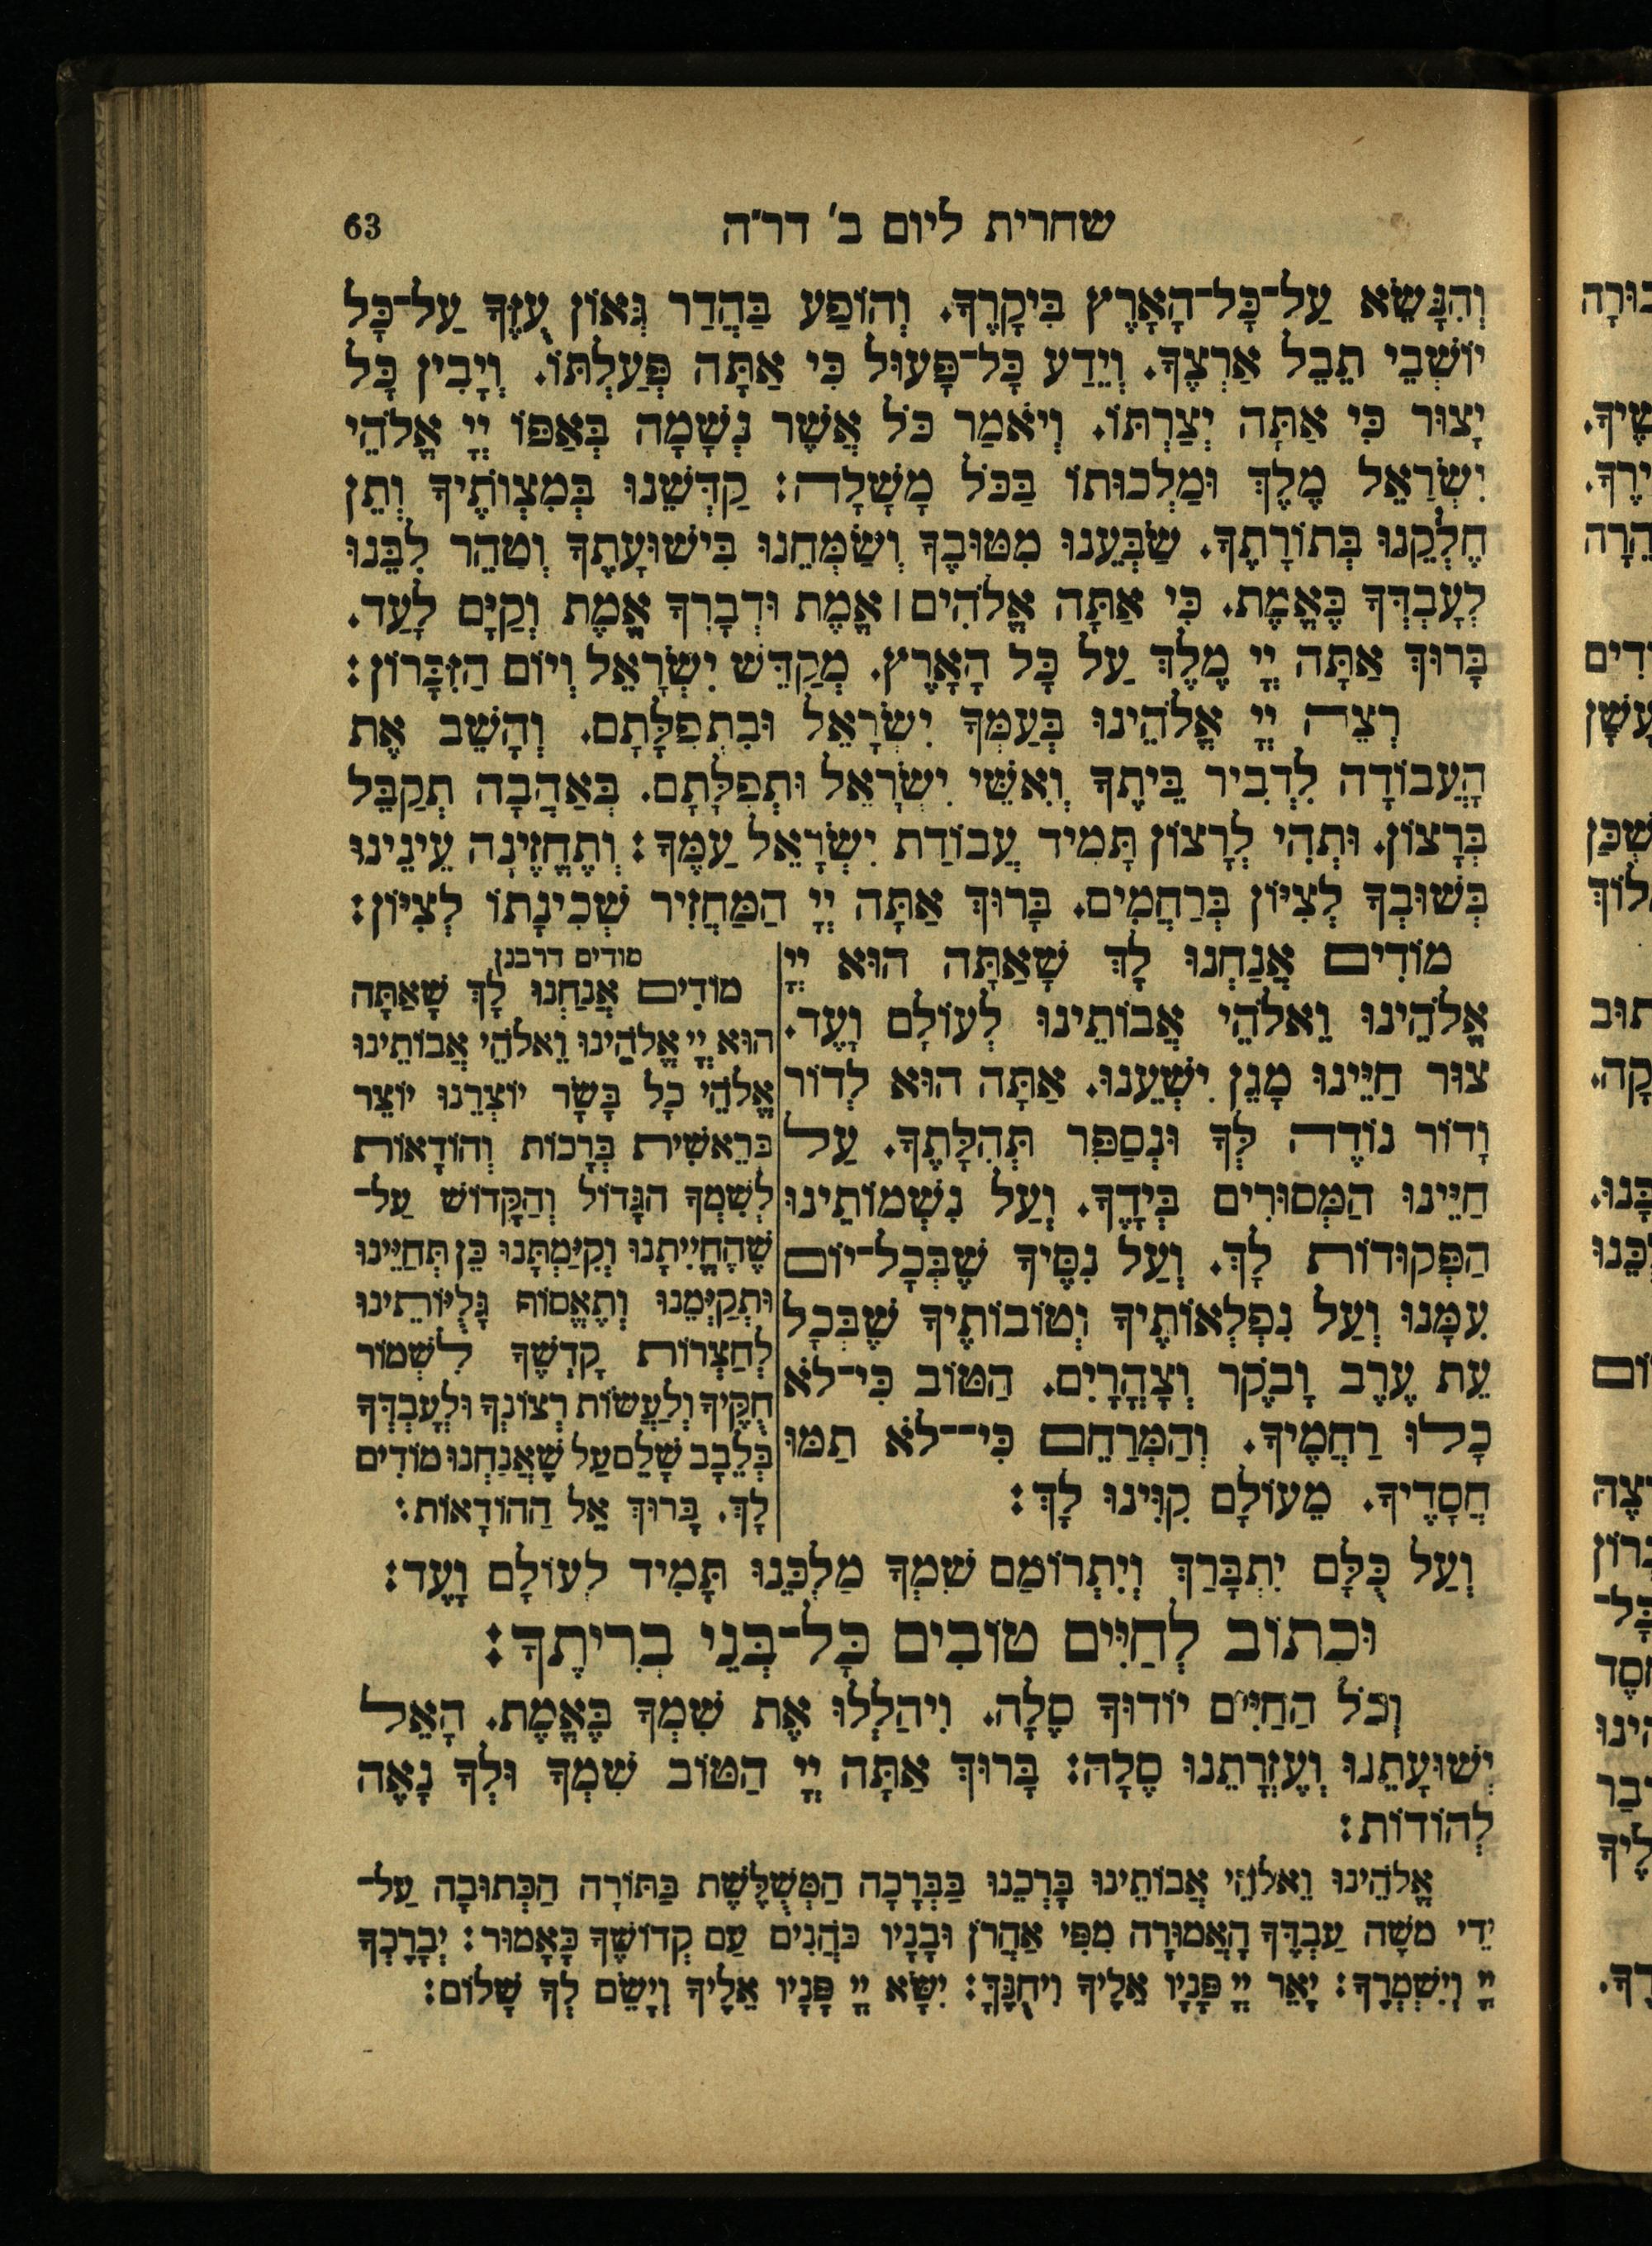 שחרית ליום ב' דר״ה
63
וְהִנָּשֵׂא עַל־כָּל־הָאָרֶץ בִּיקָרֶךָ. וְהוֹפַע בַּהֲדַר גְּאוֹן עֻזֶּךָ עַל־כָּל
יוֹשְׁבֵי תֵבֵל אַרְצֶךָ. וְיֵדַע כָּל־פָּעוּל כִּי אַתָּה פְּעַלְתּוֹ. וְיָבִין כָּל
יָצוּר כִּי אַתָּה יְצַרְתּוֹ. וְיֹאמַר כֹּל אֲשֶׁר נְשָׁמָה בְּאַפּוֹ יְיָ אֱלֹהֵי
יִשְׂרָאֵל מֶלֶךְ וּמַלְכוּתוֹ בַּכֹּל מָשָׁלָה: קַדְּשֵׁנוּ בְּמִצְוֹתֶיךָ וְתֵן
חֶלְקֵנוּ בְּתוֹרָתֶךָ. שַׂבְּעֵנוּ מִטּוּבֶךָ וְשַׂמְּחֵנוּ בִּישׁוּעָתֶךָ וְטַהֵר לִבֵּנוּ
לְעָבְדְּךָ בֶּאֱמֶת. כִּי אַתָּה אֱלֹהִים ׀ אֱמֶת וּדְבָרְךָ אֱמֶת וְקַיָּם לָעַד.
בָּרוּךְ אַתָּה יְיָ מֶלֶךְ עַל כָּל הָאָרֶץ. מְקַדֵּשׁ יִשְׂרָאֵל וְיוֹם הַזִּכָּרוֹן:
רְצֵה יְיָ אֱלֹהֵינוּ בְּעַמְּךָ יִשְׂרָאֵל וּבִתְפִלָּתָם. וְהָשֵׁב אֶת
הָעֲבוֹדָה לִדְבִיר בֵּיתֶךָ וְאִשֵּׁי יִשְׂרָאֵל וּתְפִלָּתָם. בְּאַהֲבָה תְקַבֵּל
בְּרָצוֹן. וּתְהִי לְרָצוֹן תָּמִיד עֲבוֹדַת יִשְׂרָאֵל עַמֶּךָ: וְתֶחֱזֶינָה עֵינֵינוּ
בְּשׁוּבְךָ לְצִיּוֹן בְּרַחֲמִים. בָּרוּךְ אַתָּה יְיָ הַמַּחֲזִיר שְׁכִינָתוֹ לְצִיּוֹן:
מוֹדִים אֲנַחְנוּ לָךְ שָׁאַתָּה הוּא יְיָ
אֱלֹהֵינוּ וֵאלֹהֵי אֲבוֹתֵינוּ לְעוֹלָם וָעֶד.
צוּר חַיֵּינוּ מָגֵן יִשְׁעֵנוּ. אַתָּה הוּא לְדוֹר
וָדוֹר נוֹדֶה לְּךָ וּנְסַפֵּר תְּהִלָּתֶךָ. עַל
חַיֵּינוּ הַמְּסוּרִים בְּיָדֶךָ. וְעַל נִשְׁמוֹתֵינוּ
הַפְּקוּדוֹת לָךְ. וְעַל נִסֶּיךָ שֶׁבְּכָל־יוֹם
עִמָּנוּ וְעַל נִפְלְאוֹתֶיךָ וְטוֹבוֹתֶיךָ שֶׁבְּכָל
עֵת עֶרֶב וָבֹקֶר וְצָהֳרָיִם. הַטּוֹב כִּי־לֹא
כָלוּ רַחֲמֶיךָ. וְהַמְּרַחֵם כִּי־־לֹא תַמּוּ
חֲסָדֶיךָ. מֵעוֹלָם קִוִּינוּ לָךְ:
מודים דרבנן
מוֹדִים אֲנַחְנוּ לָךְ שָׁאַתָּה
הוּא יְיָ אֱלֹהֵינוּ וֵאלֹהֵי אֲבוֹתֵינוּ
אֱלֹהֵי כָל בָּשָׂר יוֹצְרֵנוּ יוֹצֵר
בְּרֵאשִׁית בְּרָכוֹת וְהוֹדָאוֹת
לְשִׁמְךָ הַגָּדוֹל וְהַקָּדוֹשׁ עַל־
שֶׁהֶחֱיִיתָנוּ וְקִיַּמְתָּנוּ כֵּן תְּחַיֵּינוּ
וּתְקַיְּמֵנוּ וְתֶאֱסוֹף גָּלֻיּוֹתֵינוּ
לְחַצְרוֹת קָדְשֶׁךָ לִשְׁמוֹר
חֻקֶּיךָ וְלַעֲשׂוֹת רְצוֹנֶךָ וּלְעָבְדְּךָ
בְּלֵבָב שָׁלֵם עַל שֶׁאֲנַחְנוּ מוֹדִים
לָךְ. בָּרוּךְ אֵל הַהוֹדָאוֹת:
וְעַל כֻּלָּם יִתְבָּרַךְ וְיִתְרוֹמַם שִׁמְךָ מַלְכֵּנוּ תָּמִיד לְעוֹלָם וָעֶד:
וּכְתוֹב לְחַיִּים טוֹבִים כָּל־בְּנֵי בְרִיתֶךָ:
וְכֹל הַחַיִּים יוֹדוּךָ סֶלָה. וִיהַלְלוּ אֶת שִׁמְךָ בֶּאֱמֶת. הָאֵל
יְשׁוּעָתֵנוּ וְעֶזְרָתֵנוּ סֶלָה: בָּרוּךְ אַתָּה יְיָ הַטּוֹב שִׁמְךָ וּלְךָ נָאֶה
לְהוֹדוֹת:
אֱלֹהֵינוּ וֵאלֹהֵי אֲבוֹתֵינוּ בָּרְכֵנוּ בַּבְּרָכָה הַמְשֻׁלֶּשֶׁת בַּתּוֹרָה הַכְּתוּבָה עַל־
יְדֵי משֶׁה עַבְדֶּךָ הָאֲמוּרָה מִפִּי אַהֲרֹן וּבָנָיו כֹּהֲנִים עַם קְדוֹשֶׁךָ כָּאָמוּר: יְבָרֶכְךָ
יְיָ וְיִשְׁמְרֶךָ: יָאֵר יְיָ פָּנָיו אֵלֶיךָ וִיחֻנֶּךָּ: יִשָּׂא יְיָ פָּנָיו אֵלֶיךָ וְיָשֵׂם לְךָ שָׁלוֹם: